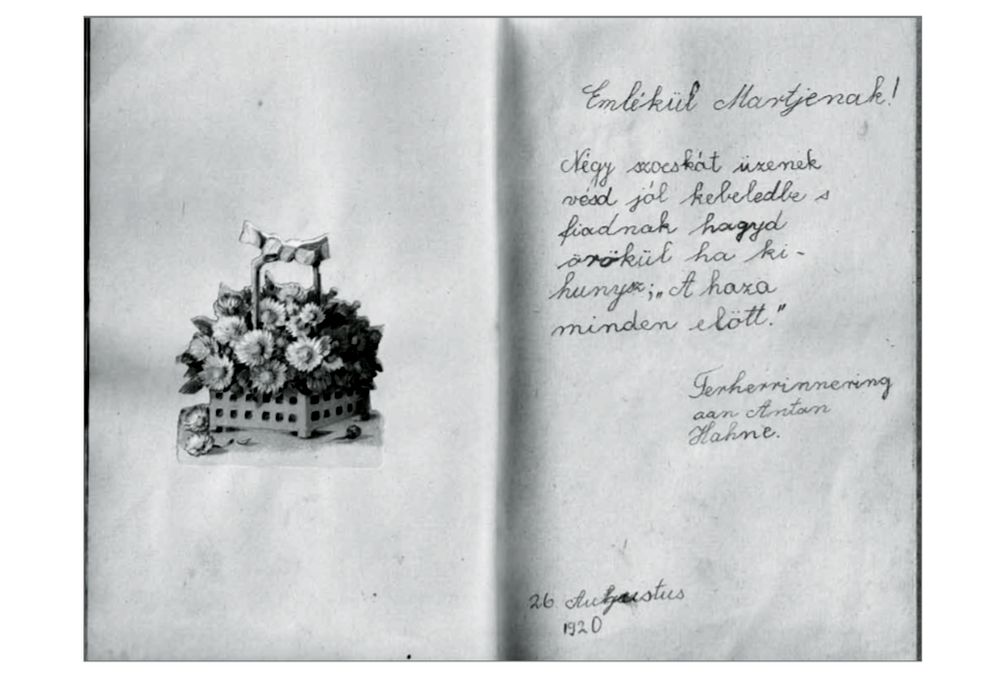 Emlékül Martjenak!
Négy szocskát üzenek
vésd jól kebeledbe s
fiadnak hagyd
örökül ha ki-
hunysz; „A haza
minden elött."
Terherrinnering
aan Antan
Hahne.
26 Augustus
1920